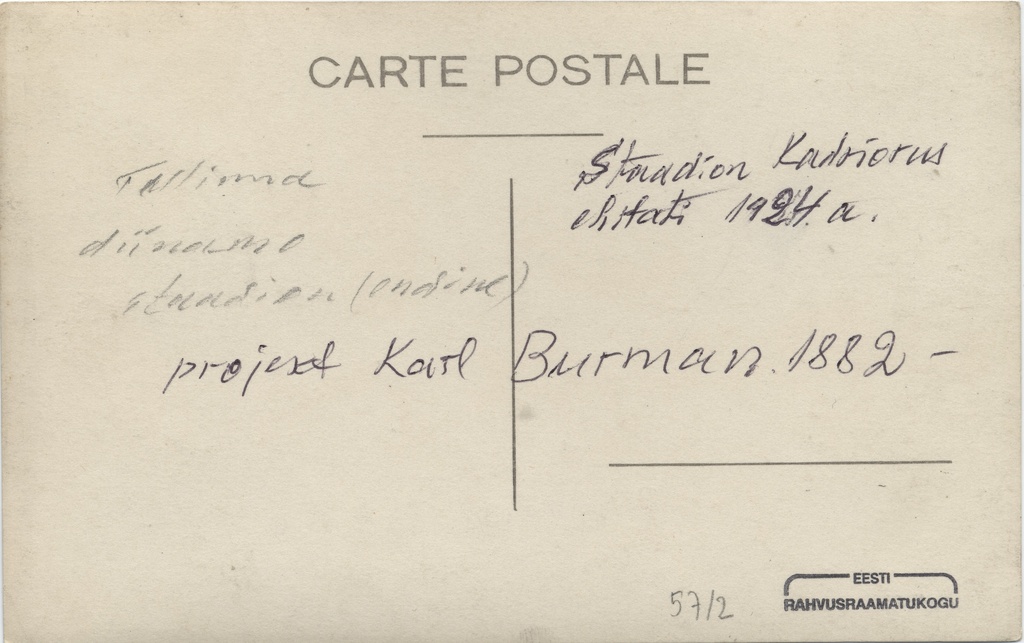 CARTE POSTALE
Tallinna
diinamo
staadion (endine)
Staadion Kadriorus
ehitati 1924. a.
projekt Karl Burman. 1882 –
57/2
EESTI
RAHVUSRAAMATUKOGU